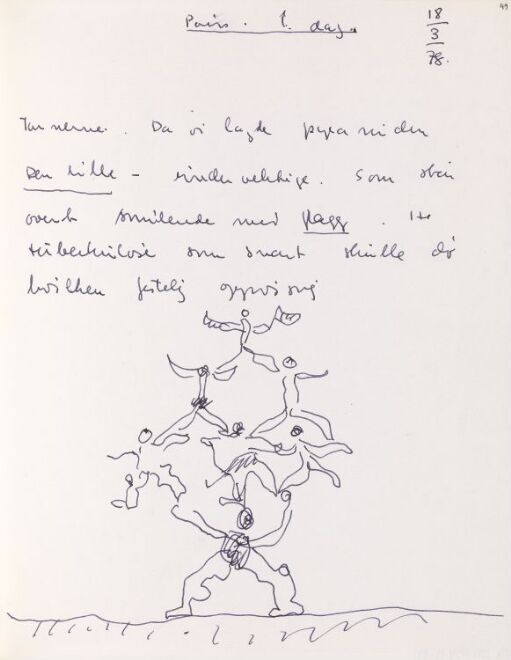 Paris. 1. dag.
18
3
78.
49
Turnerne. Da vi lagde pyramiden
Den lille – undervektige. Som sto
øverst smilende med flagg.
tuberkuløse som snart skulle dø
hvilken oppvisning